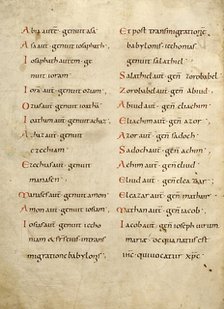 Abia aut genuit asa
Asa aut genuit iosaphath
Iosaphath autem ge
nuit ioram
Ioram aut genuit
Ozias aut genuit ioatha
Ioatham aut genuit
Achaz aut genuit
ezechiam
Ezechias aut genuit
manasen
Manases aut genuit amon
Amon aut genuit iosiam
Iosias aut genuit iecho
niam & fr eius in trans
migratione babylonis
Et post transmigratione
babylonis iechonias
genuit salathiel
Salathiel aut genuit zorobabel
Zorobabel aut gen abiud
Abiud aut gen eliachim
Eliachim aut gen azor
Azor aut gen sadoch
Sadoch aut gen achim
Achim aut gen eliud
Eliud aut gen eleazar
Eleazar aut gen mathan
Mathan aut gen iacob
Iacob aut gen ioseph uirum
mariae de qua natus est
ihc qui uocatur xpc